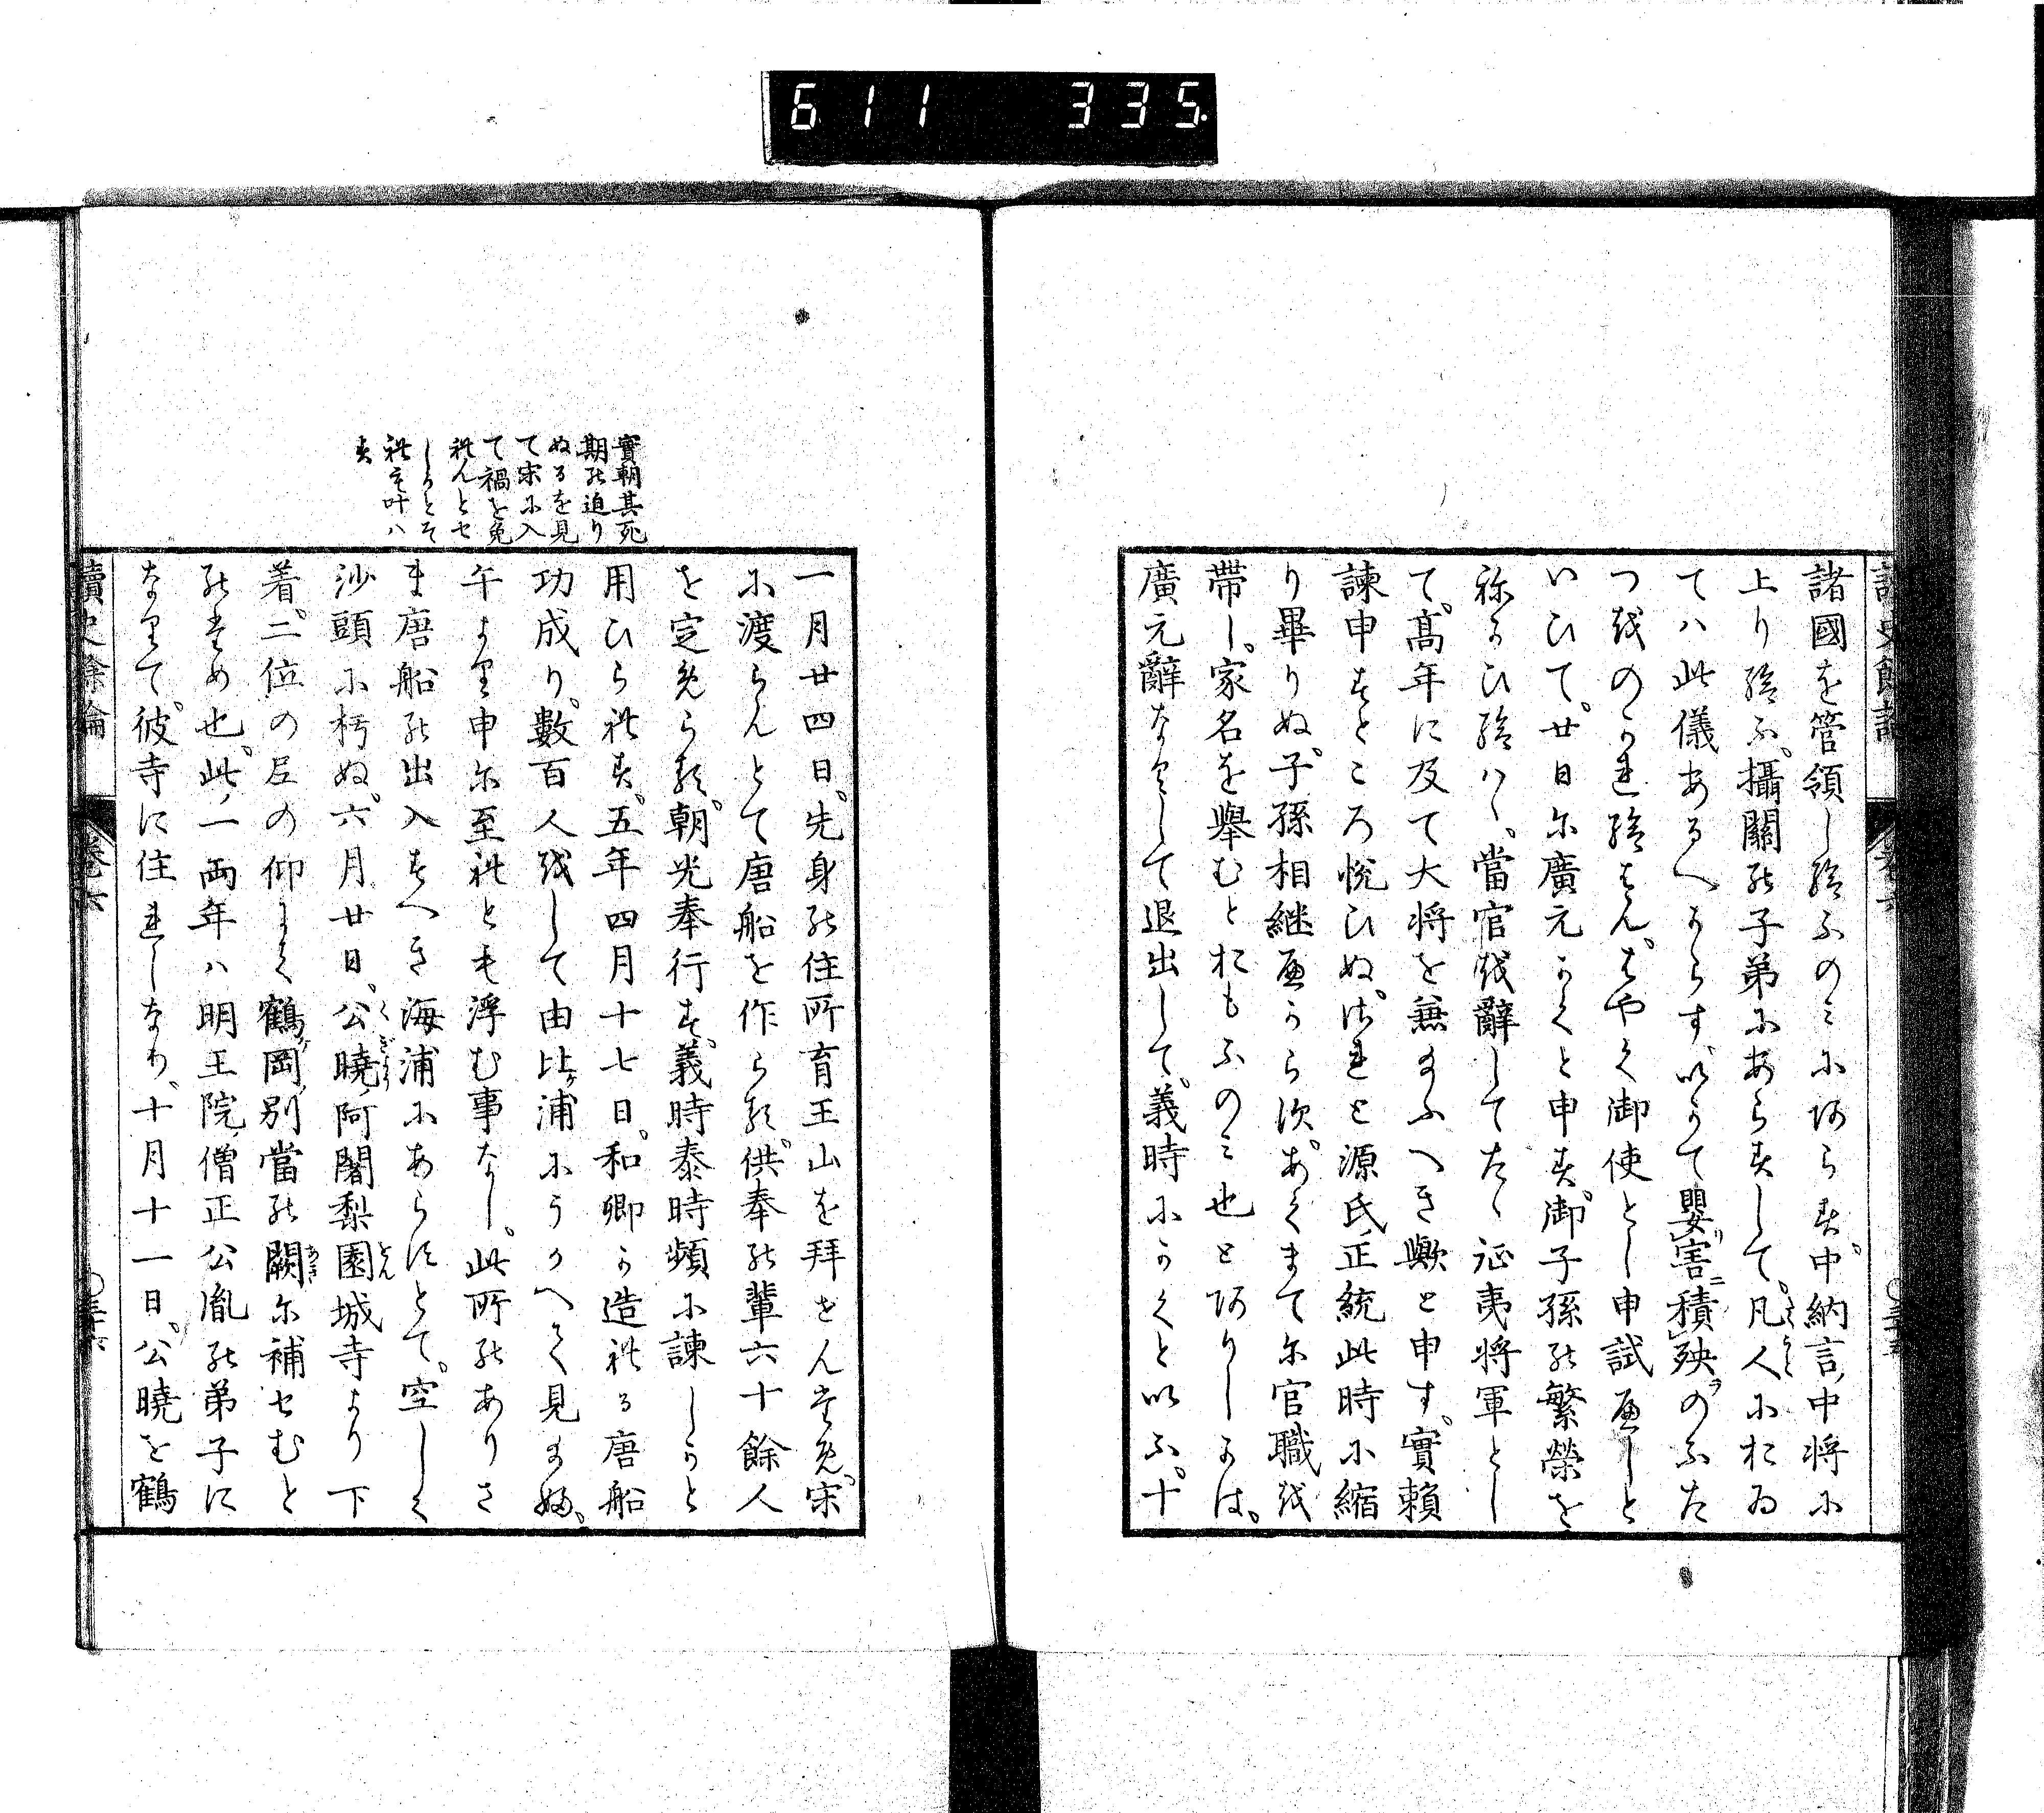 611 335
諸國を管領し給ふのミにあらす。中納言、中将に
上り給ふ。攝關の子弟にあらすして。凡人におゐ
てハ此儀あるへからす。いかて嬰害積殃のふた
つをのかれ給はん。はやく御使とし申試へしと
いひて。廿日に廣元かくと申す。御子孫の繁榮を
ねかひ給ハヽ。當官を辭してたヽ征夷将軍とし
て。髙年に及て大将を兼給ふへき歟と申す。實頼
諫申すところ悦ひぬ。されと源氏正統此時に縮
り畢りぬ。子孫相継へからす。あくまてに官職を
帶し。家名を舉むとおもふのミ也とありしかは。
廣元辭なくして退出して。義時にかくといふ。十
一月廿四日。先身の住所育王山を拜せんため。宋
に渡らんとて唐船を作らる。供奉の輩六十餘人
を定めらる。朝光奉行す。義時泰時頻に諫しかと
用ひられす。五年四月十七日。和卿か造れる唐船
功成り。數百人をして由比浦にうかへて見給ふ。
午より申に至れとも浮む事なし。此所のありさ
ま唐船の出入すへき海浦にあらすとて。空しく
沙頭に朽ぬ。六月廿日。公曉、阿闍梨園城寺より下
着。二位の尼の仰によて鶴岡別當の闕に補せむと
のため也。此一両年ハ明王院僧正公胤の弟子に
なりて。彼寺に住せしなり。十月十一日。公曉を鶴
實朝其死
期の迫り
ぬるを見
て宋に入
て禍を免
れんとせ
しかとそ
れも叶ハ
す
讀史餘論
卷六